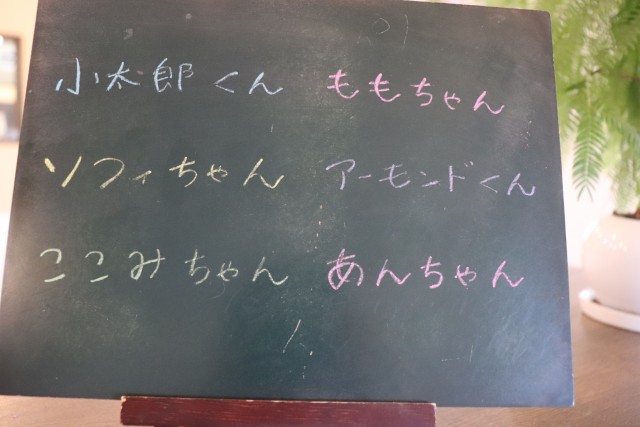 小太郎くん ももちゃん
ソフィちゃん アーモンドくん
ここみちゃん あんちゃん